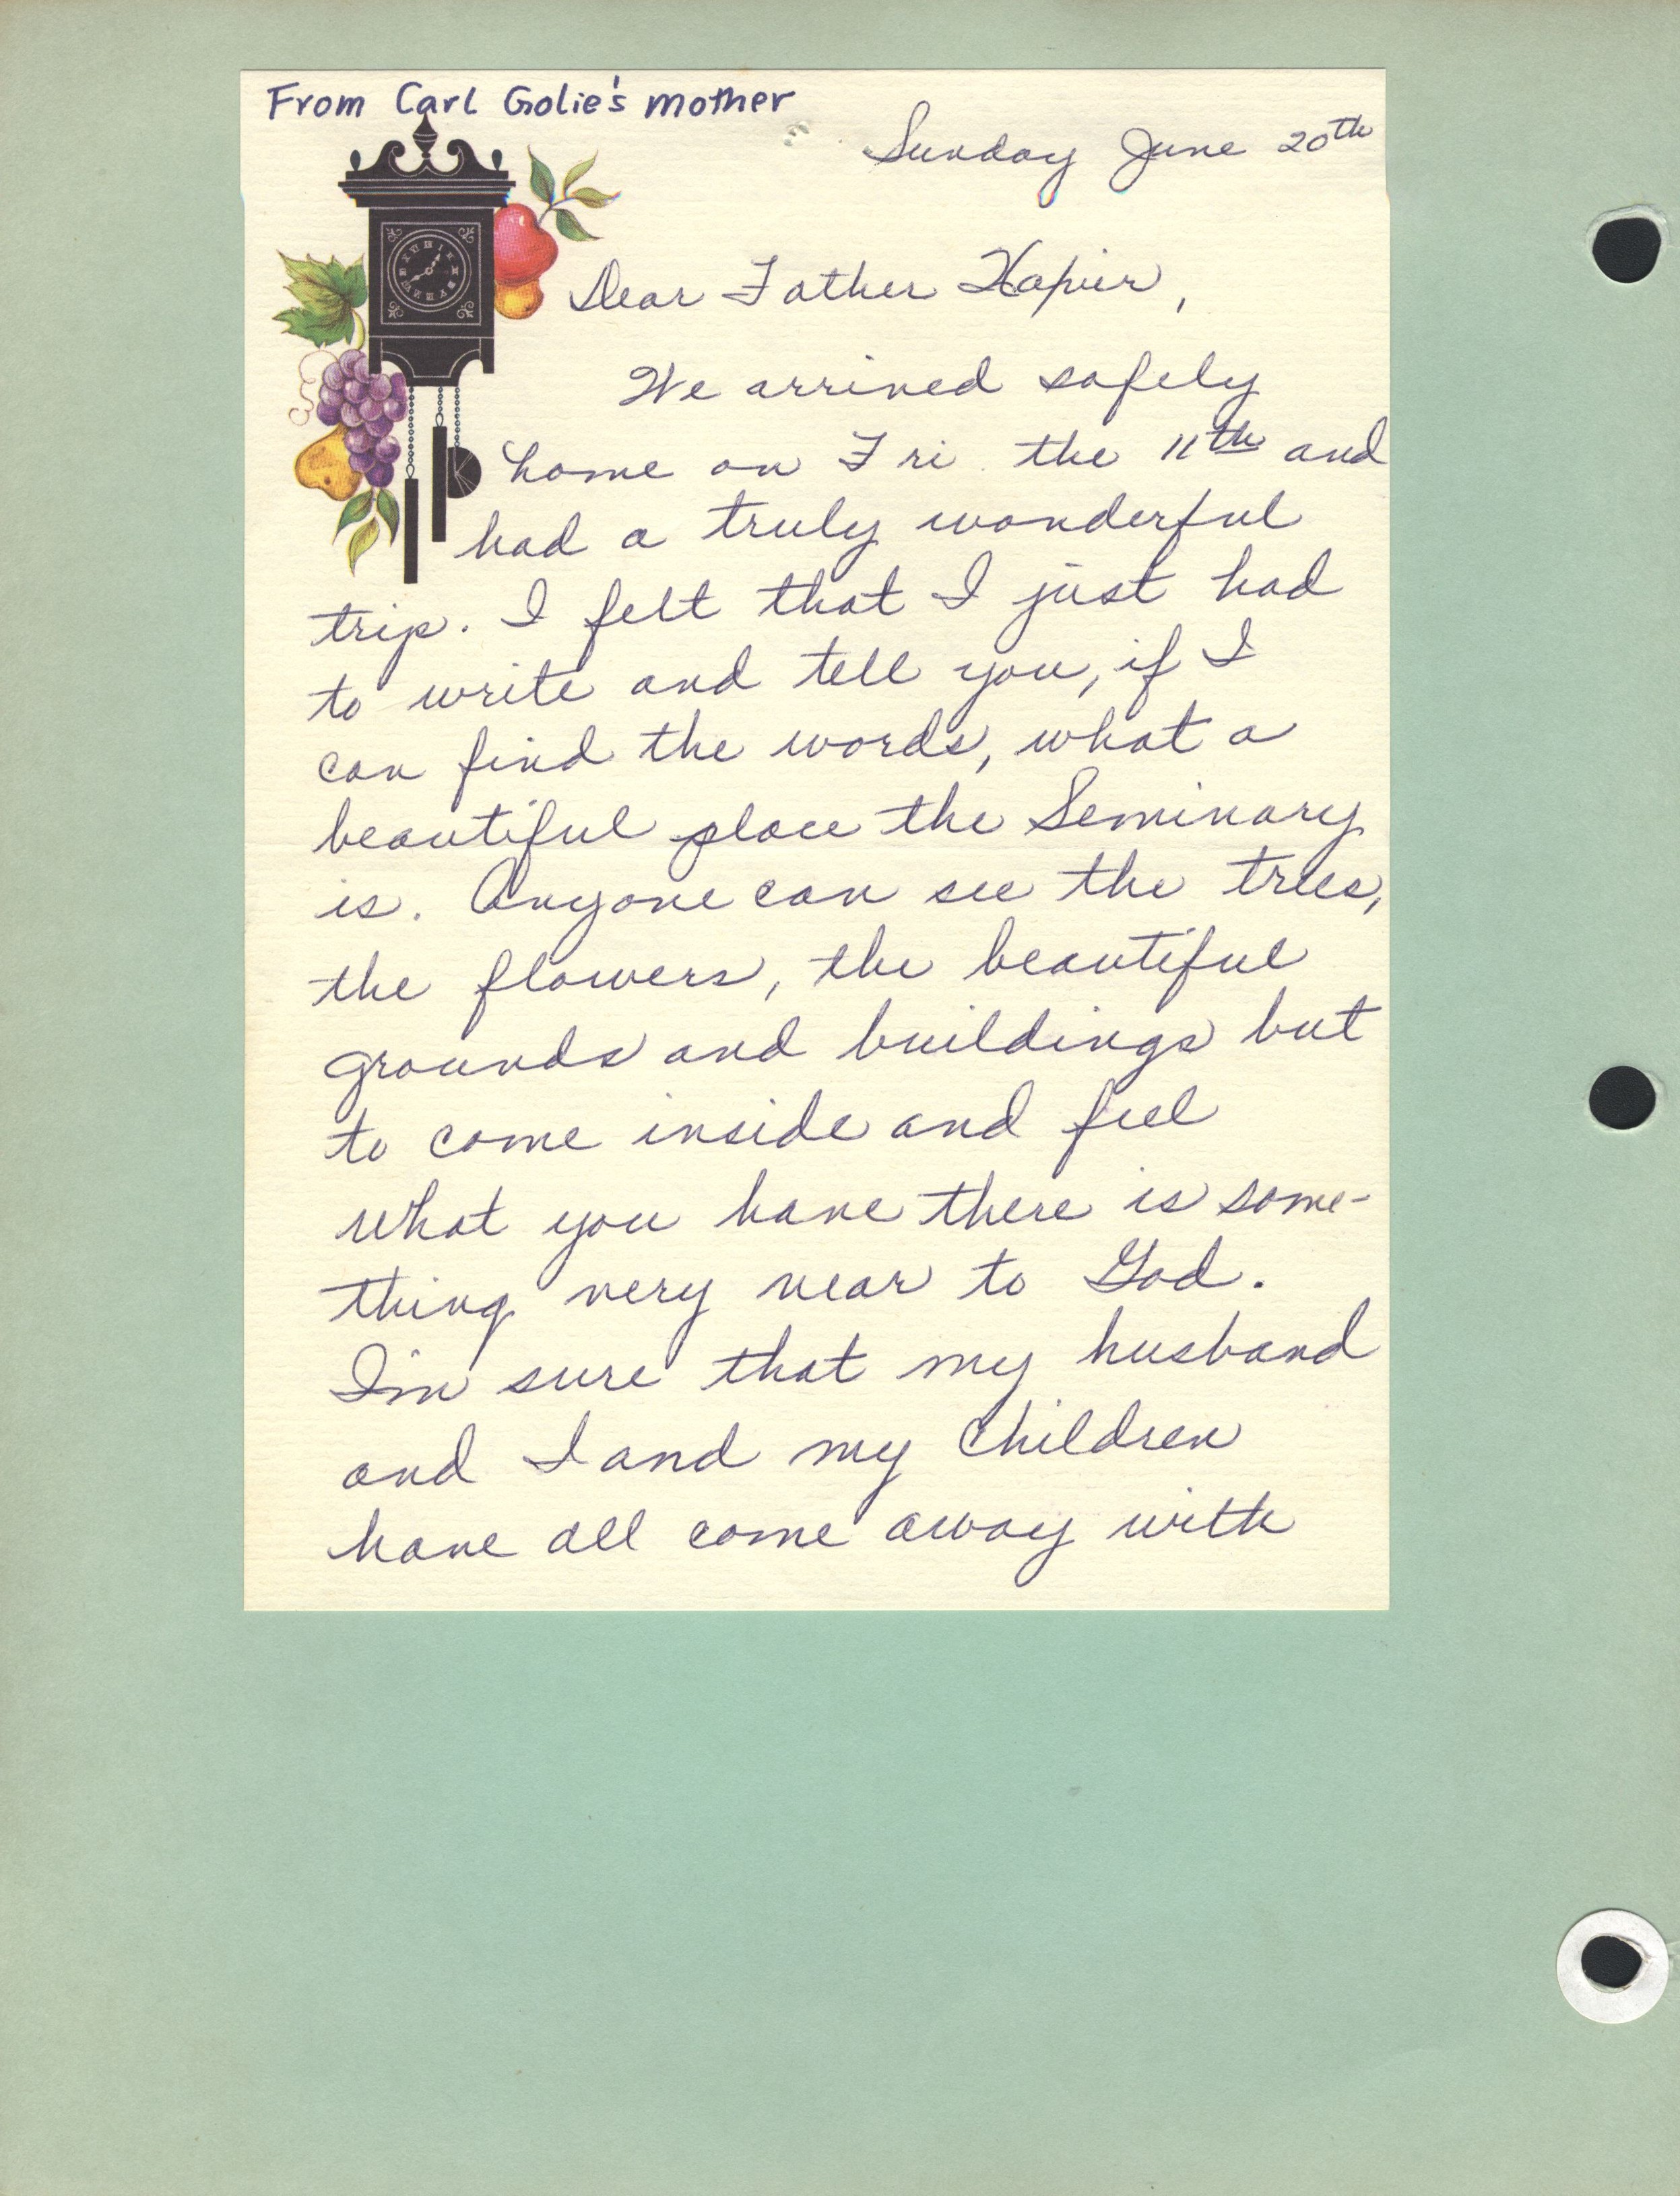 From Carl Golie's mother
Sunday June 20th
Dear Father Xavier,
We arrived safely
home on Fri. the 11th and
had a truly wonderful
trip. I felt that I just had
to write and tell you, if I
can find the words, what a
beautiful place the Seminary
is. Anyone can see the trees,
the flowers, the beautiful
grounds and buildings but
to come inside and feel
what you have there is some-
thing very near to God.
I'm sure that my husband
and I and my children
have all come away with